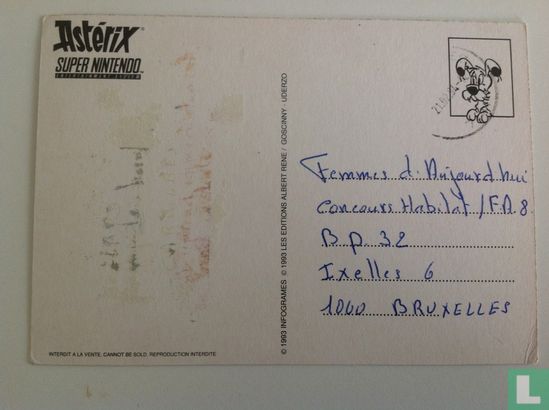 Astérix®
SUPER NINTENDO™
ENTERTAINMENT SYSTEM
Femmes d'Aujourd'hui
Concours Habitat/FA 8
BP 32
Ixelles 6
1060 BRUXELLES
© 1993 INFOGRAMES © 1993 LES EDITIONS ALBERT RENE / GOSCINNY - UDERZO
INTERDIT A LA VENTE. CANNOT BE SOLD. REPRODUCTION INTERDITE
L